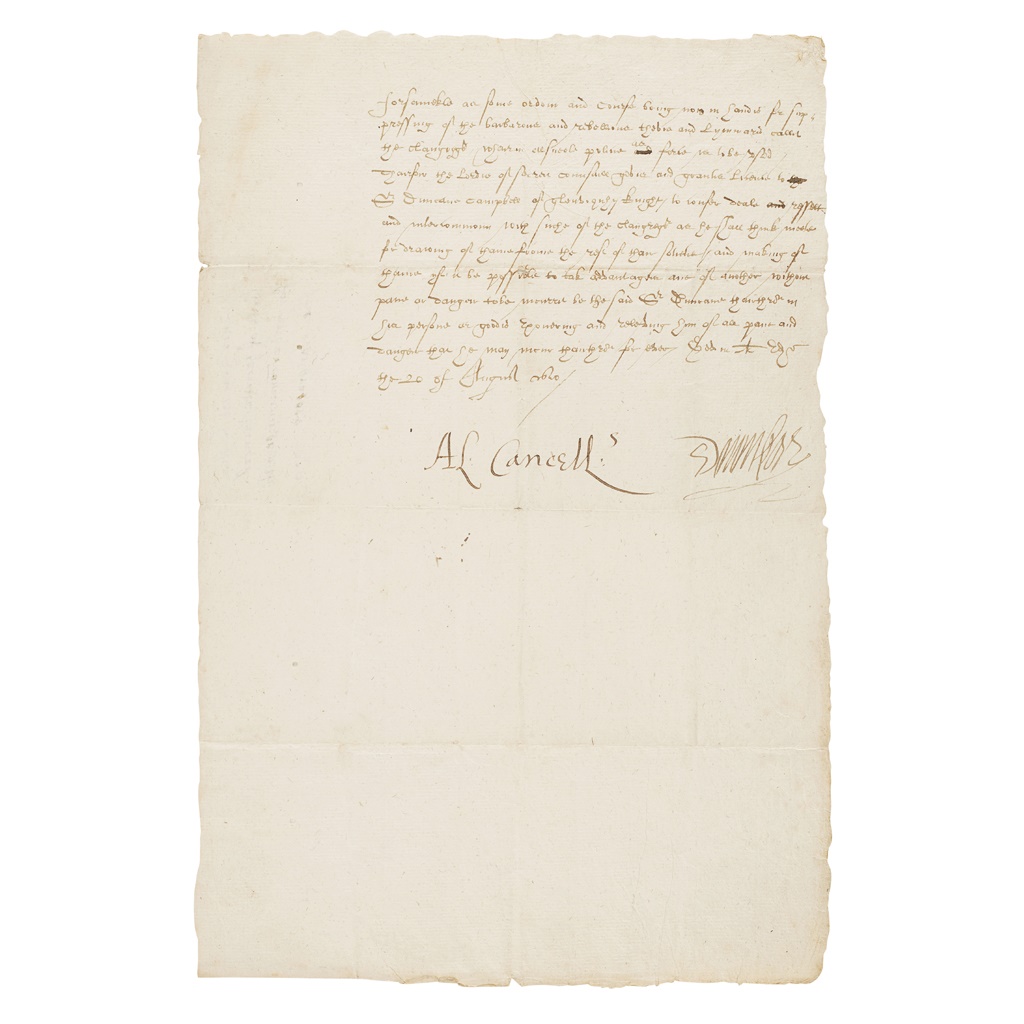 Forsamekle as some ordour and course being now in handis for sup-
pressing of the barbarous and rebellious thevis and lymmaris callit
the Clangregr wherin alsweele policie as force m be usid
Thairfor the Lordis of secreit counsall gevis and grantis licence to
Sr Duncane Campbell of glenurquhy knight to confer deale and
and intercommoun with suche of the clangregr as he sall think meete
for drawing of thame frome the rest of thair societie and making of
thame gif it be possible to tak advantage ane of another without
pane or danger to be incurrit be the said Sr Duncane thairthrow in
his persone or goodis exonering and releving him of all pane and
danger that he may incur thairthrow for ever Gevin at Edr
the 20 of August 1610
Al. Cancells
Dunmber